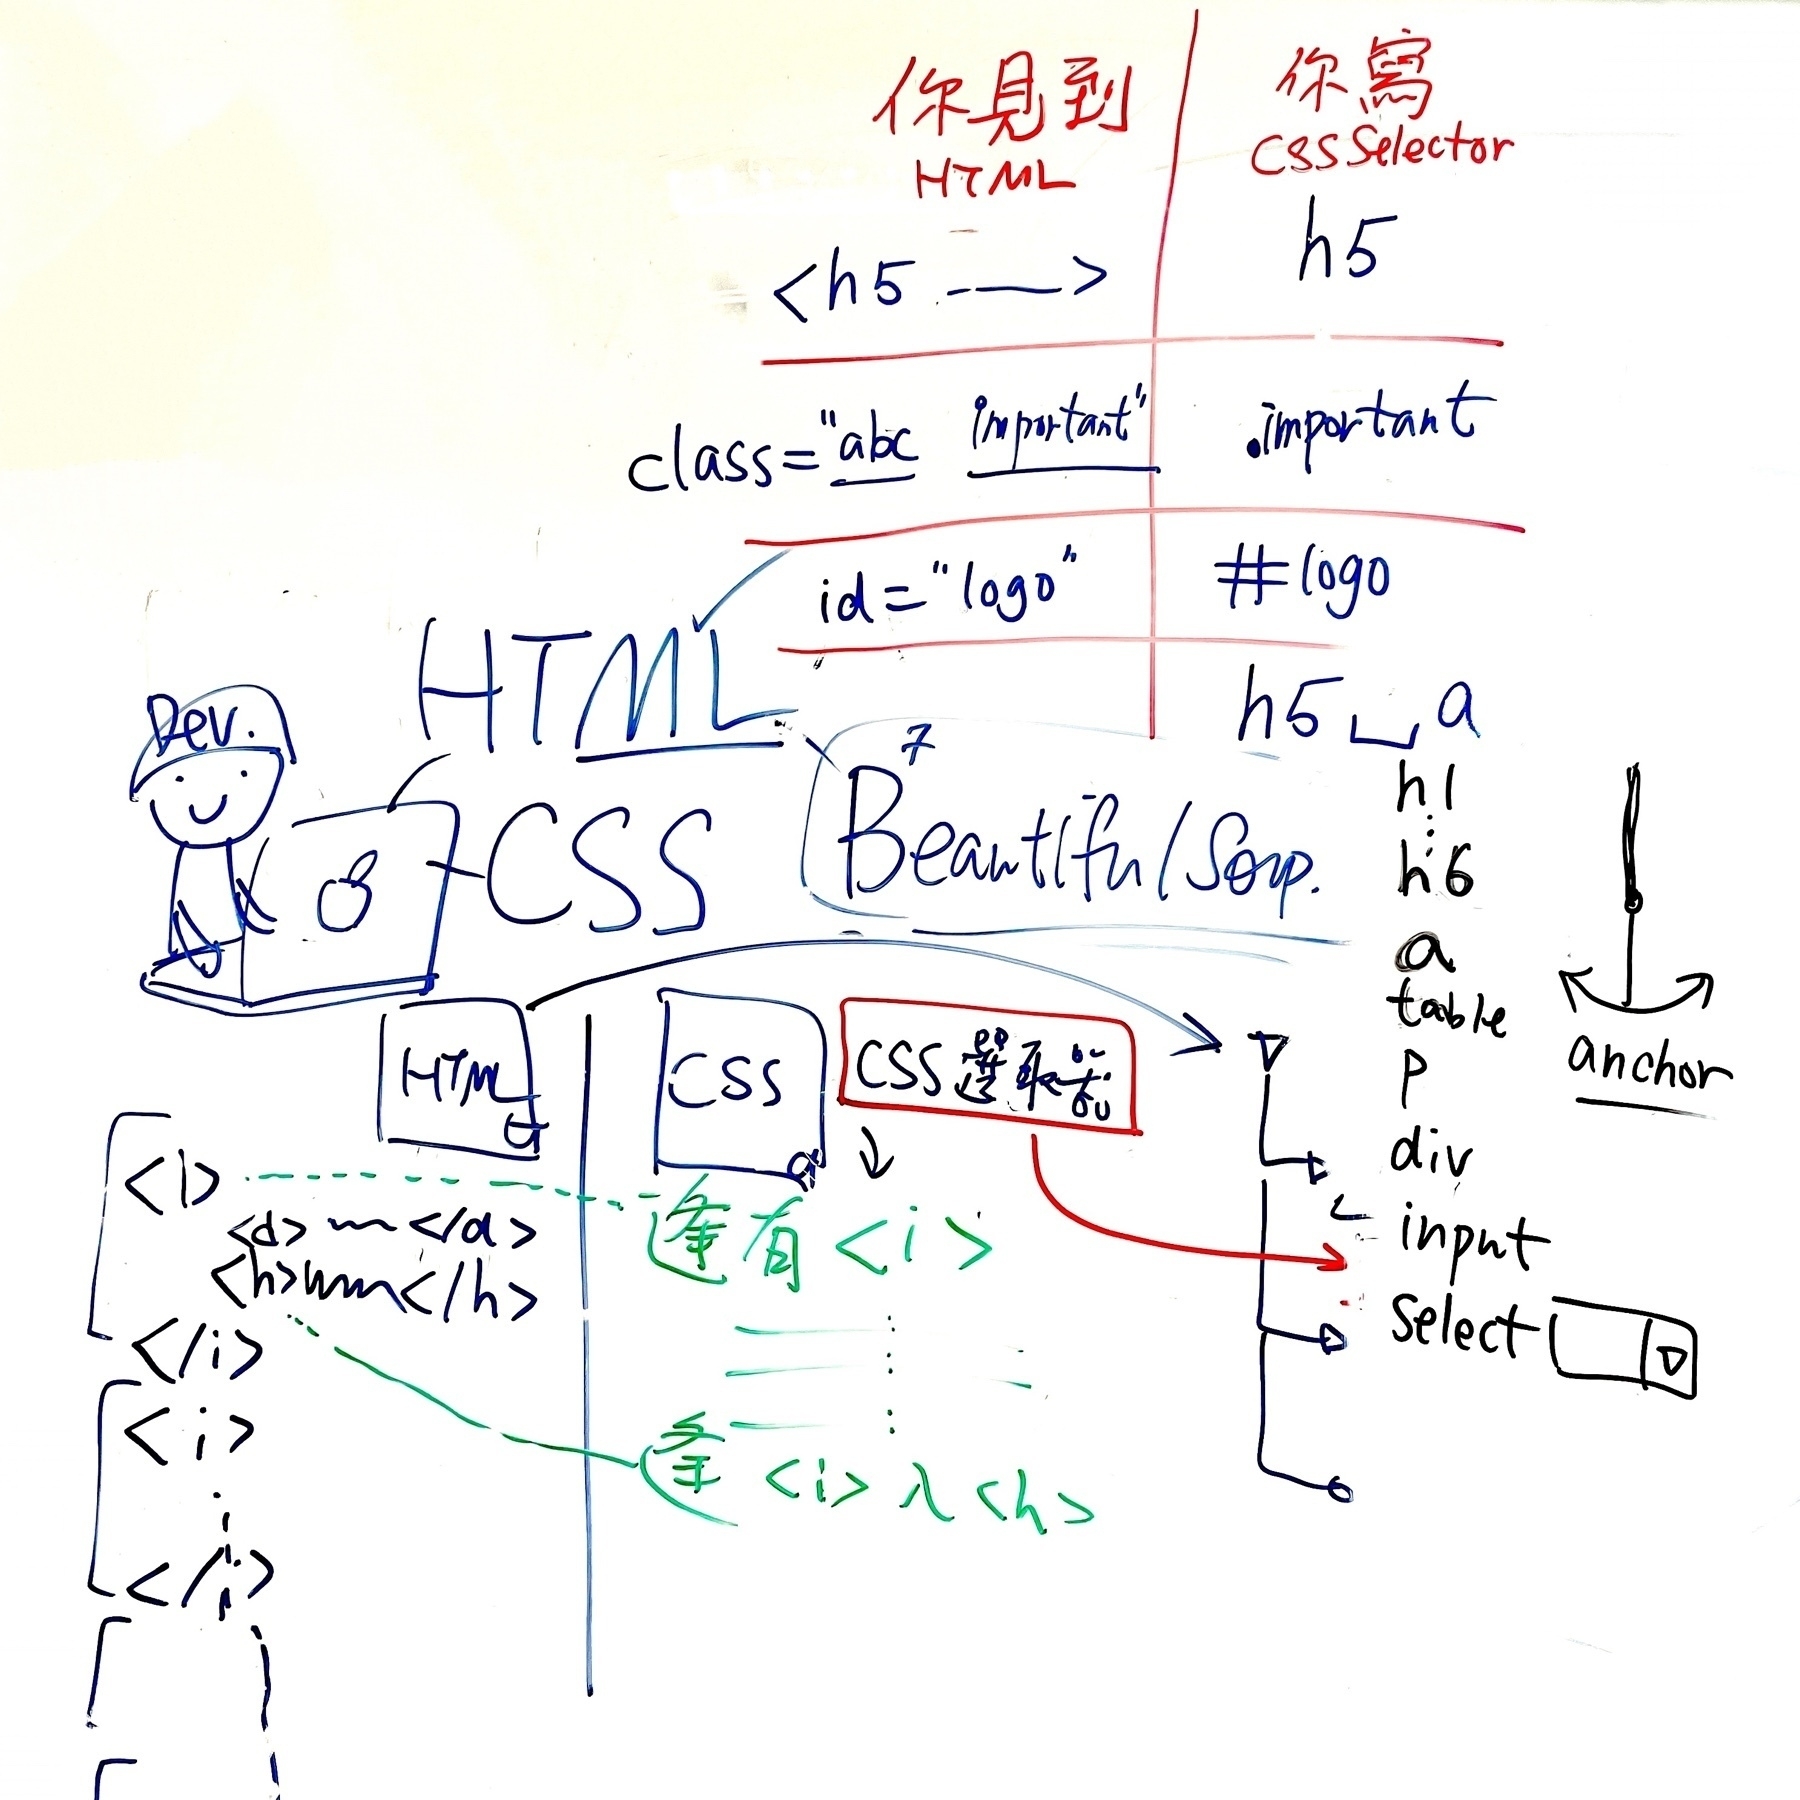 你見到
HTML
你寫
CSS Selector
<h5 --—>
h5
class="abc important"
.important
id="logo"
#logo
h5␣a
HTML
Dev.
CSS
BeautifulSoup.
h1
⋮
h6
a
table
p
div
input
select
anchor
HTML
CSS
CSS選取器
逢有<i>
逢<i>入<h>
</i>
<i>
</i>
</h>